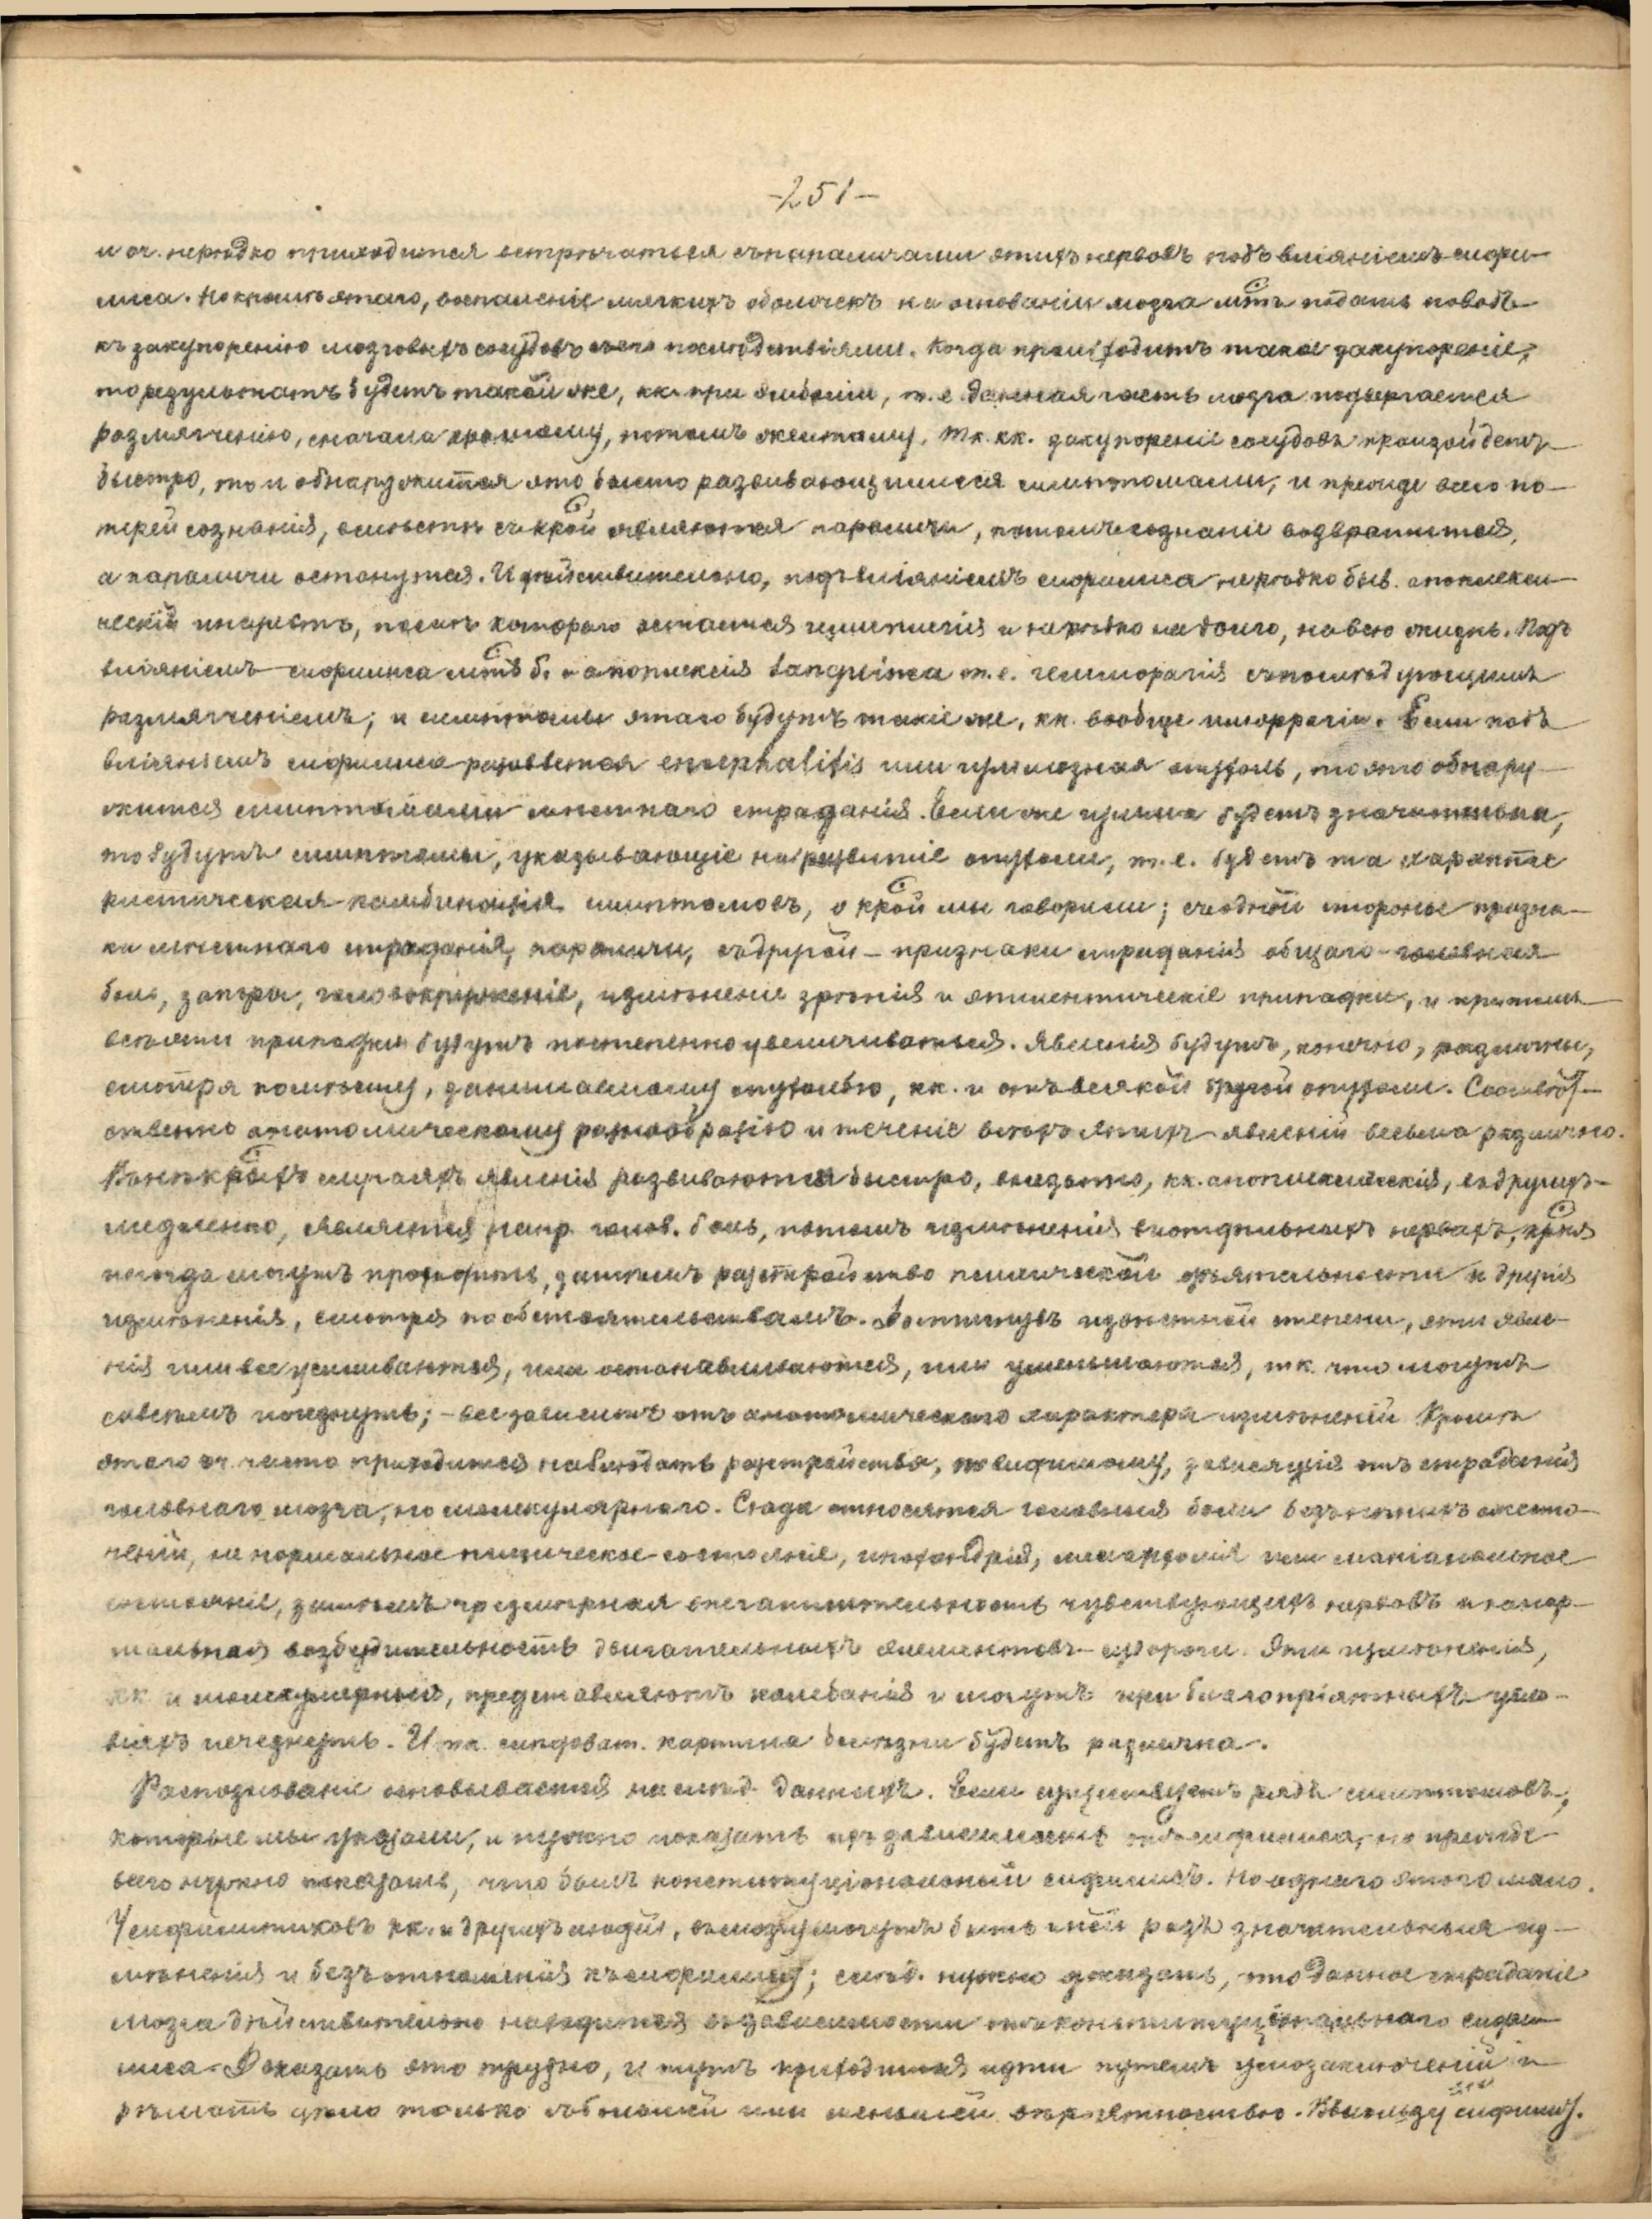 -251-
и оч. нерѣдко приходится встрѣчаться съ параличами этихъ нервовъ подъ вліяніемъ сифи-
лиса. Но кромѣ этаго, воспаленіе мягкихъ оболочекъ на основаніи мозга мтъ подать поводъ
къ закупоренію мозговыхъ сосудовъ съ его послѣдствіями. Когда происходитъ такое закупореніе,
то результатъ будетъ такой же, кк. при эмболіи, т. е. данная часть мозга подвергается
размягченію, сначала красному, потомъ желтому. Тк. кк. закупореніе сосудовъ произойдетъ
быстро, то и обнаружится это быстро развивающимися симптомами, и прежде всего по-
терей сознанія, вмѣстѣ съ крой являются параличи, потомъ сознаніе возвратится,
а параличи останутся. И дѣйствительно, подъ вліяніемъ сифилиса нерѣдко быв. апоплекси-
ческій инсультъ, послѣ котораго остается гемиплегія и нерѣдко надолго, на всю жизнь. Подъ
вліяніемъ сифилиса мтъ б. и апоплексія sanguinea т. е. гемморагія съ послѣдующимъ
размягченіемъ; и симптомы этаго будутъ такіе же, кк. вообще гиморрагіи. Если подъ
вліяніемъ сифилиса разовьется encephalitis или гуммозная опухоль, то это обнару-
жится симптомами мѣстнаго страданія. Если же гумма будетъ значительна,
то будутъ симптомы, указывающіе на развитіе опухоли, т. е. будетъ та характе
ристическая комбинація симптомовъ, о крой мы говорили; съ одной стороны призна-
ки мѣстнаго страданія, параличи, съ другой - признаки страданія общаго - головная
боль, запоры, головокруженіе, измѣненіе зрѣнія и эпилептическіе припадки, и притомъ
всѣ эти припадки будутъ постепенно увеличиваться. Явленія будутъ, конечно, различны,
смотря по мѣсту, занимаемому опухолью, кк. и отъ всякой другой опухоли. Соотвѣт-
ственно анатомическому разнообразію и теченіе всѣхъ этихъ явленій весьма различно.
Въ нѣкрыхъ случаяхъ явленія развиваются быстро, внезапно, кк. апоплексическія, въ другихъ
медленно, является напр. голов. боль, потомъ измѣненія въ отдѣльныхъ нервахъ, крыя
иногда могутъ проходить, затѣмъ разстройство психической дѣятельности и другія
измѣненія, смотря по обстоятельствамъ. Достигнувъ извѣстной степени, эти явле-
нія или все усиливаются, или останавливаются, или уменьшаются, тк. что могутъ
совсѣмъ исчезнуть; - все зависитъ отъ анатомическаго характера измѣненій. Кромѣ
этаго оч. часто приходится наблюдать разстройства, по видимому, зависящія отъ страданія
головнаго мозга, но молекулярнаго. Сюда относятся головныя боли безъ ночныхъ ожесто-
ченій, не нормальное психическое состояніе, ипохондрія, меланхолія или маніакальное
состояніе, затѣмъ чрезмѣрная впечатлительность чувствующихъ нервовъ и ненор-
мальная возбудительность двигательныхъ элементовъ - судороги. Эти измѣненія,
кк. и молекулярныя, представляютъ колебанія и могутъ при благопріятныхъ усло-
віяхъ исчезнуть. И тк. слѣдоват. картина болѣзни будетъ различна.
Распознованіе основывается на слѣд. данныхъ. Если существуетъ рядъ симптомовъ,
которые мы указали, и нужно показать ихъ зависимость отъ сифилиса, то прежде
всего нужно показать, что былъ конституціональный сифилисъ. Но однаго этого мало.
У сифилитиковъ кк. и другихъ людей, въ мозгу могутъ быть иной разъ значительныя из-
мѣненія и безъ отношенія къ сифилису; слѣд. нужно доказать, что данное страданіе
мозга дѣйствительно находится въ зависимости отъ конституціональнаго сифи-
лиса. Доказать это трудно, и тутъ приходится идти путемъ умозаключеній и
рѣшать дѣло только съ большей или меньшей вѣроятностью. Въ пользу сифилису.